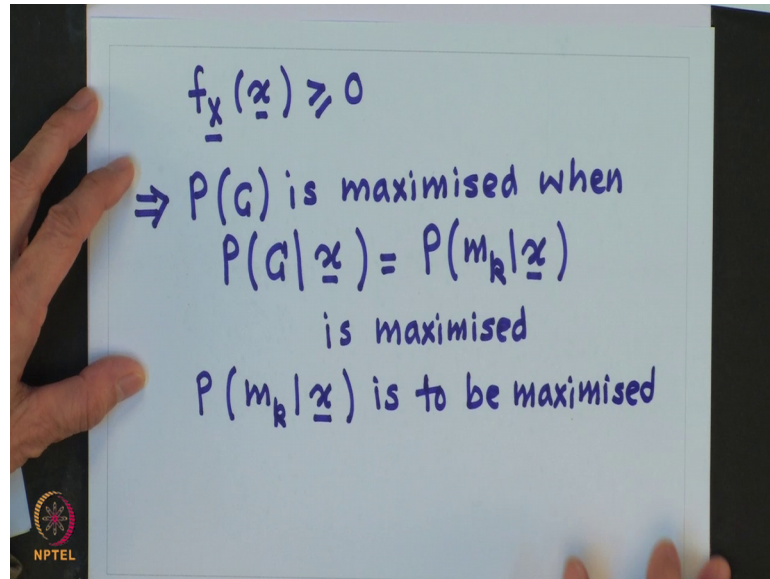 f_X(x) ⩾ 0
⇒ P(C) is maximised when
P(C|x) = P(m_k|x)
is maximised
P(m_k|x) is to be maximised
NPTEL